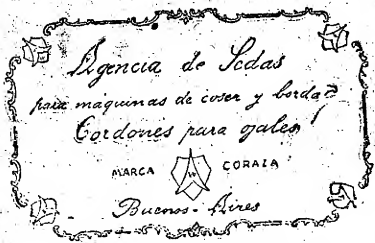 Agencia de Sedas
para máquinas de coser y bordar
Cordones para ojales
MARCA CORAZA
Buenos-Aires